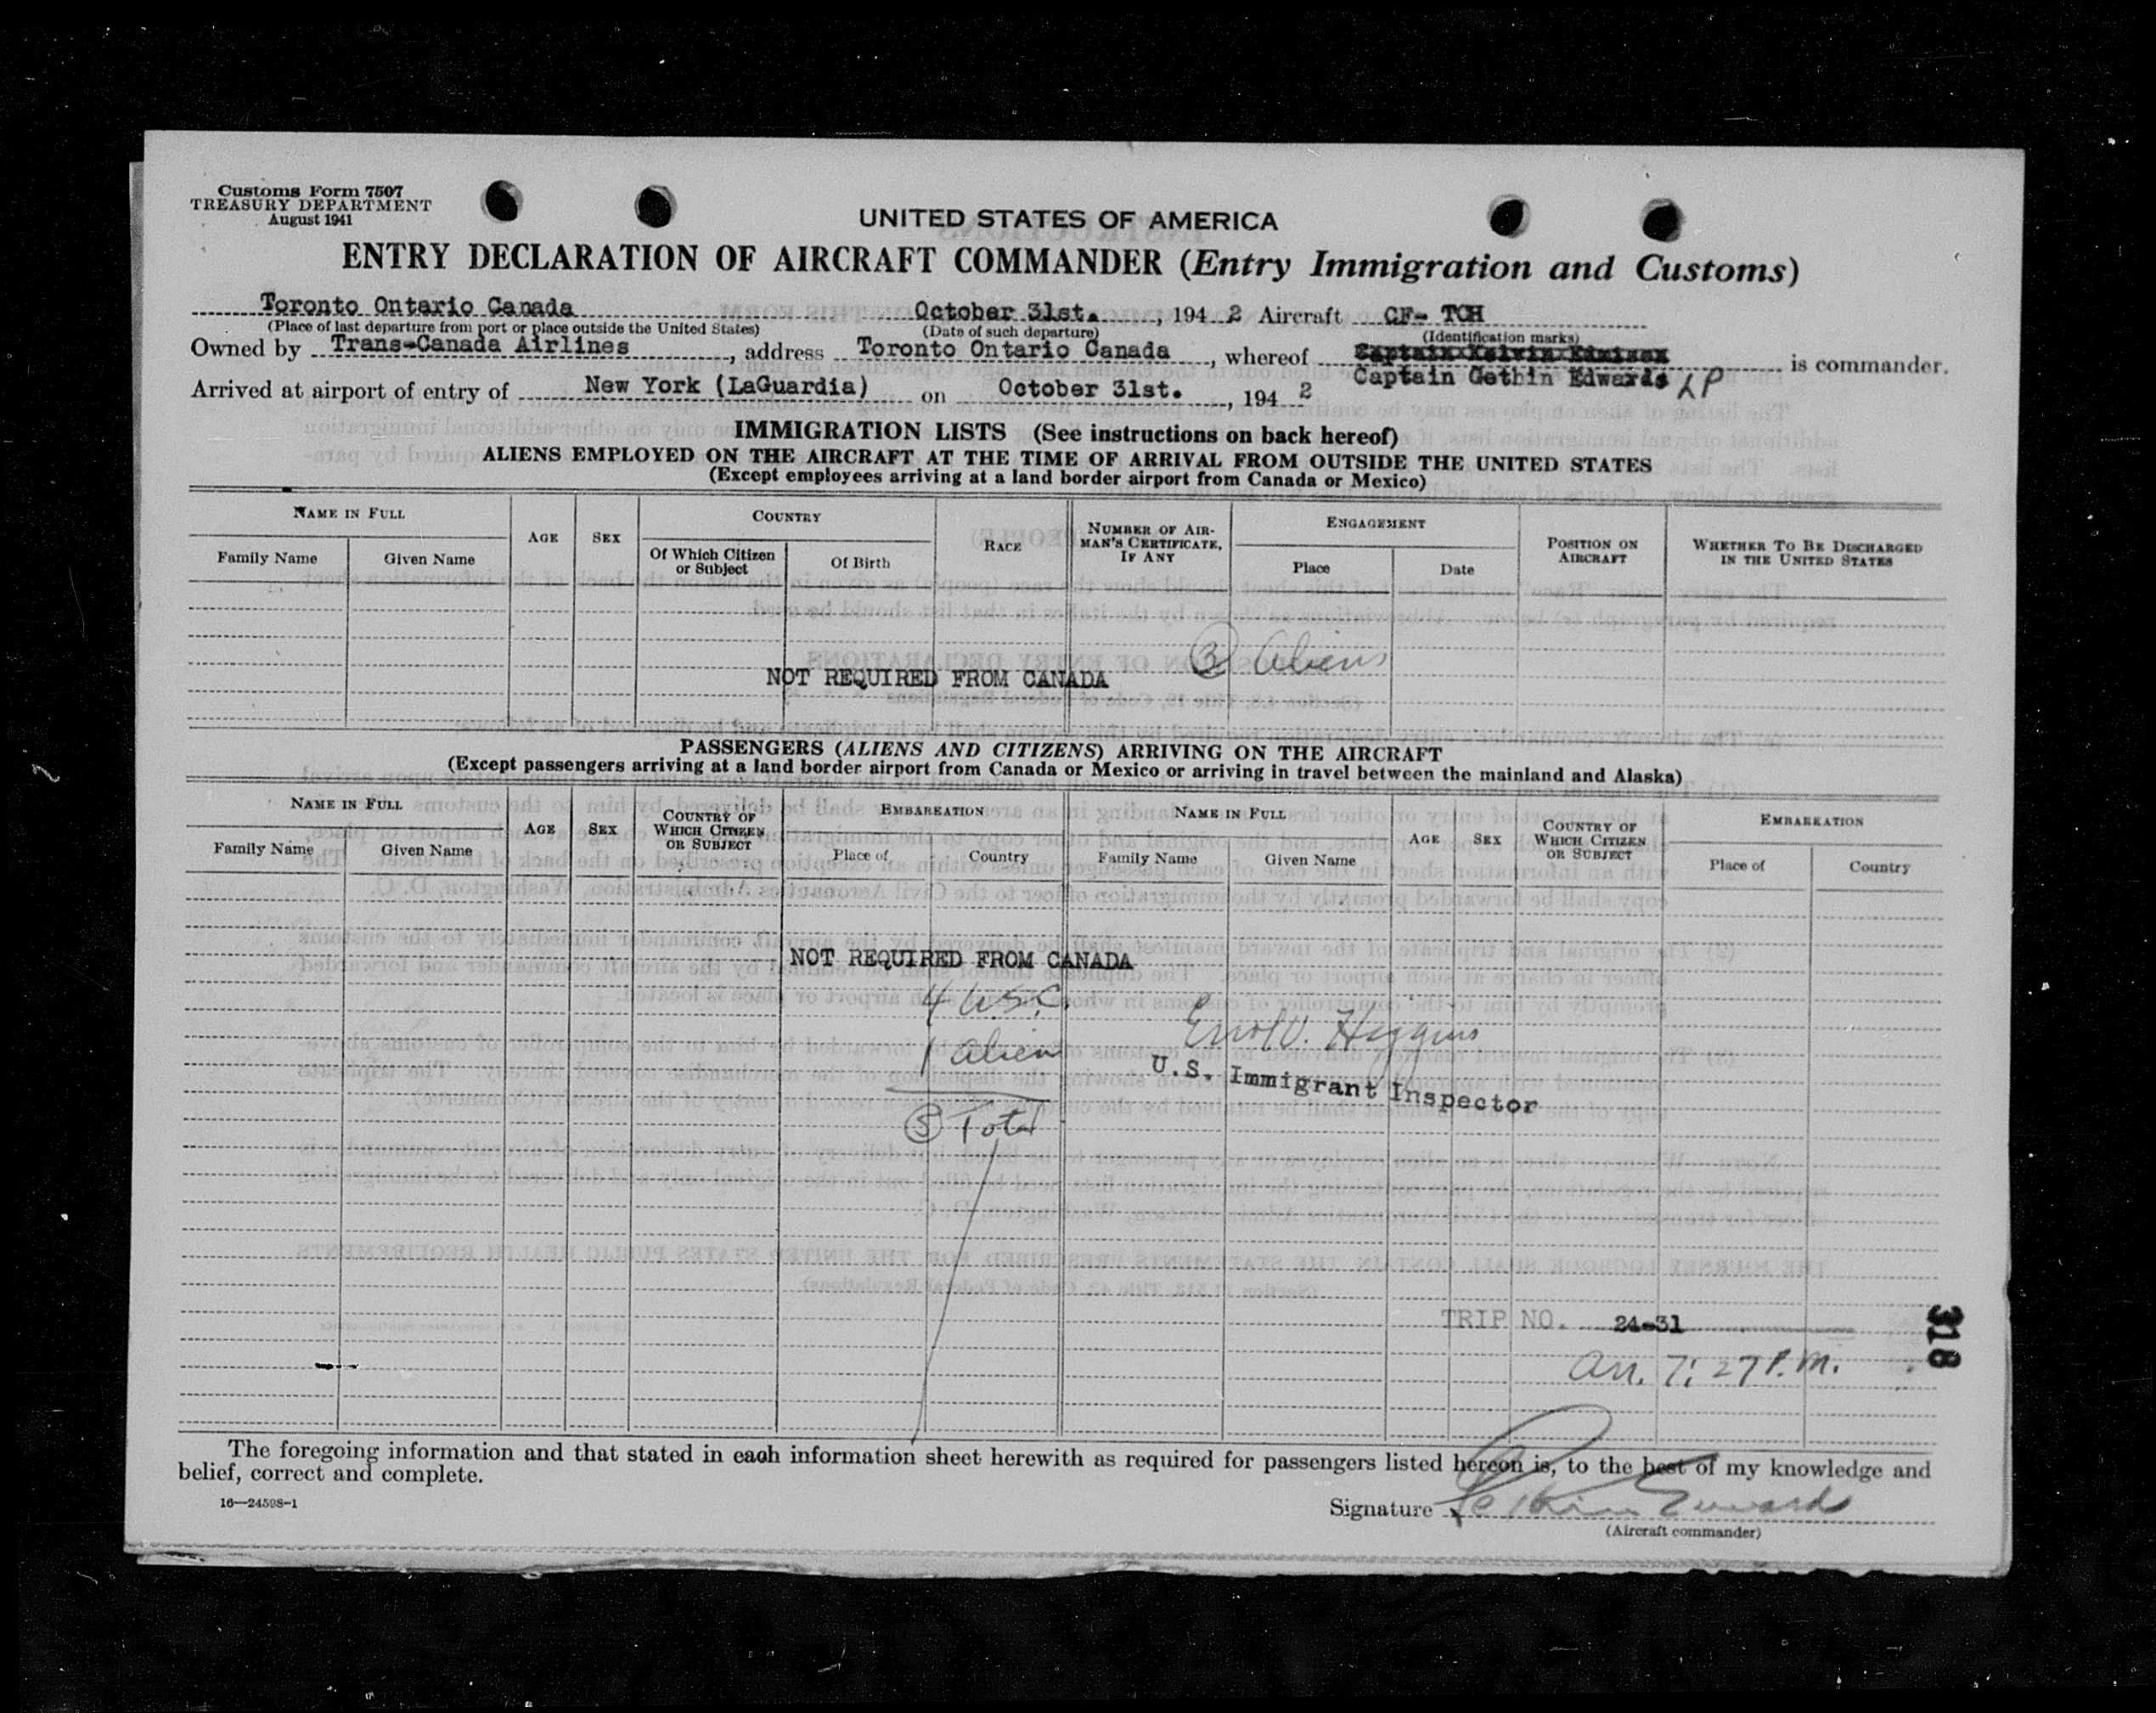 Customs Form 7507
TREASURY DEPARTMENT
August 1941
UNITED STATES OF AMERICA
ENTRY DECLARATION OF AIRCRAFT COMMANDER (Entry Immigration and Customs)
Toronto Ontario Canada October 31st. , 194 2 Aircraft CF- TCH
(Place of last departure from port or place outside the United States) (Date of such departure) (Identification marks)
Owned by Trans-Canada Airlines , address Toronto Ontario Canada , whereof Captain is commander.
Captain Gethin Edwards LP
Arrived at airport of entry of New York (LaGuardia) on October 31st. , 194 2
IMMIGRATION LISTS (See instructions on back hereof)
ALIENS EMPLOYED ON THE AIRCRAFT AT THE TIME OF ARRIVAL FROM OUTSIDE THE UNITED STATES
(Except employees arriving at a land border airport from Canada or Mexico)
NAME IN FULL
Family Name Given Name
AGE
SEX
COUNTRY
Of Which Citizen or Subject
Of Birth
RACE
NUMBER OF AIR-
MAN'S CERTIFICATE,
IF ANY
ENGAGEMENT
Place Date
POSITION ON
AIRCRAFT
WHETHER TO BE DISCHARGED
IN THE UNITED STATES
3 Aliens
NOT REQUIRED FROM CANADA
PASSENGERS (ALIENS AND CITIZENS) ARRIVING ON THE AIRCRAFT
(Except passengers arriving at a land border airport from Canada or Mexico or arriving in travel between the mainland and Alaska)
NAME IN FULL
Family Name Given Name
AGE
SEX
COUNTRY OF
WHICH CITIZEN
OR SUBJECT
EMBARKATION
Place of Country
NAME IN FULL
Family Name Given Name
AGE
SEX
COUNTRY OF
WHICH CITIZEN
OR SUBJECT
EMBARKATION
Place of Country
NOT REQUIRED FROM CANADA
4 U.S.C.
1 alien
5 Total
Errol V. Higgins
U.S. Immigrant Inspector
TRIP NO. 24-31
318
Arr. 7:27 P.M.
The foregoing information and that stated in each information sheet herewith as required for passengers listed hereon is, to the best of my knowledge and
belief, correct and complete.
16—24598-1
Signature Gethin Edwards
(Aircraft commander)